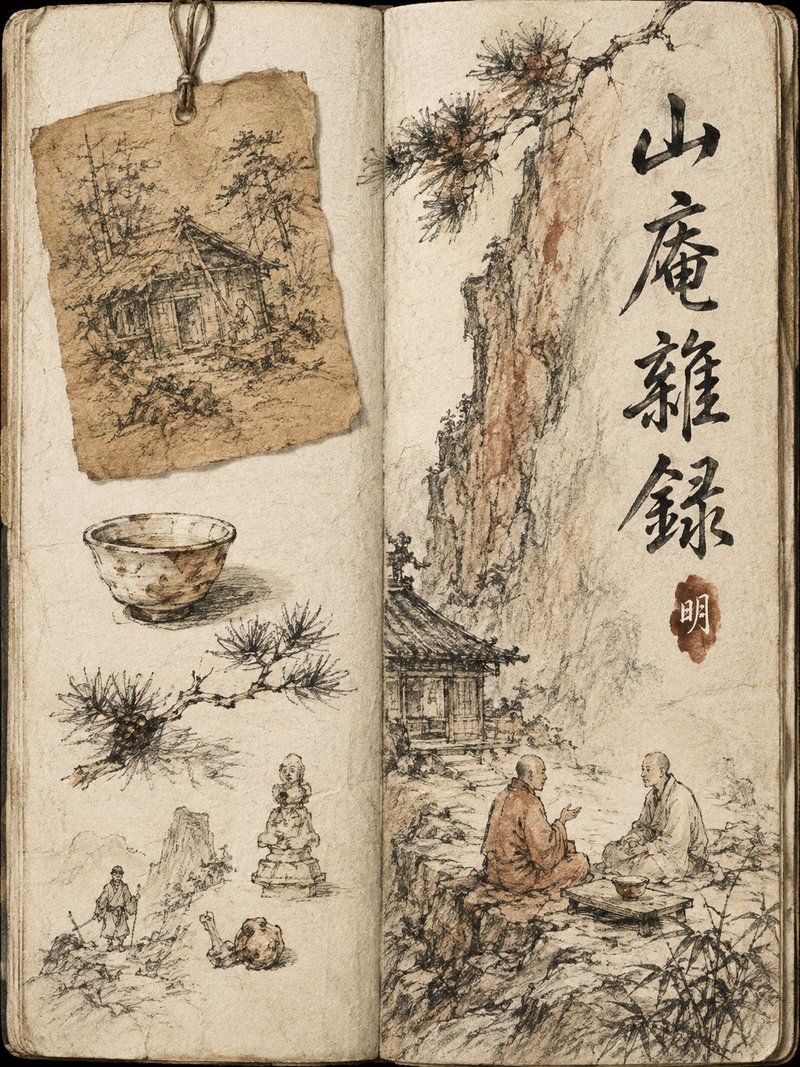 山庵雜録
明